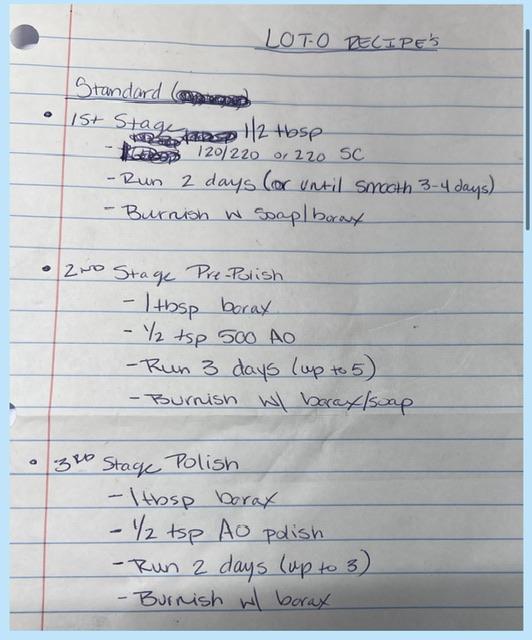 LOT-O RECIPE'S
Standard
• 1st Stage 1/2 tbsp
- 120/220 or 220 SC
- Run 2 days (or until smooth 3-4 days)
- Burnish w soap/borax
• 2ND Stage Pre-Polish
- 1 tbsp borax
- 1/2 tsp 500 AO
- Run 3 days (up to 5)
- Burnish w/ borax/soap
• 3RD Stage Polish
- 1 tbsp borax
- 1/2 tsp AO polish
- Run 2 days (up to 3)
- Burnish w/ borax